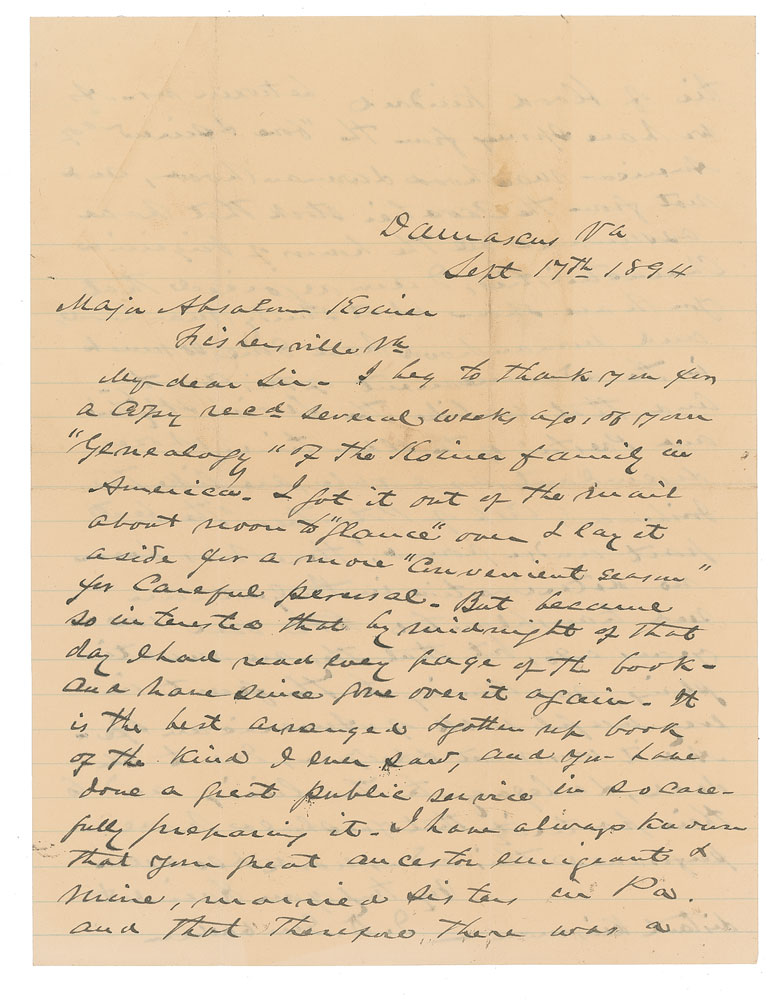 Damascus Va
Sept 17th 1894
Major Absalom Koiner
Fishersville Va
My dear Sir - I beg to thank you for
a copy recd several weeks ago, of your
"Genealogy" of the Koiner family in
America. I got it out of the mail
about noon to "glance" over & lay it
aside for a more "Convenient season"
for careful perusal - But became
so interested that by midnight of that
day I had read every page of the book -
and have since gone over it again - It
is the best arranged & gotten up book
of the kind I ever saw, and you have
done a great public service in so care-
fully preparing it - I have always known
that your great ancestor emigrant &
mine, married sisters in Pa.
and that therefore, there was a